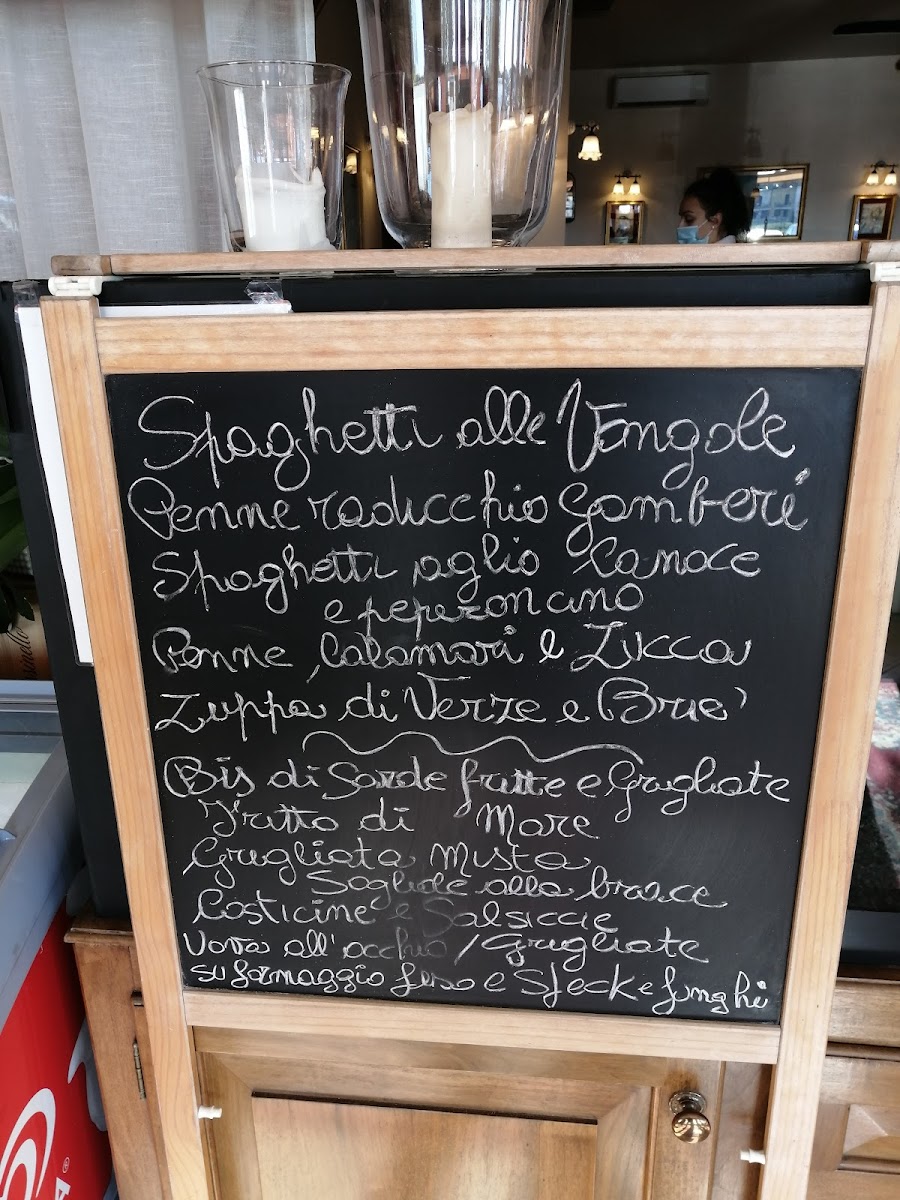 Spaghetti alle Vongole
Penne radicchio Gamberi
Spaghetti aglio Canoce
e peperoncino
Penne, Calamari e Zucca
Zuppa di Verze e Brie'
Bis di Sarde fritte e Grigliate
Fritto di Mare
Grigliata Mista
Sogliole alla brace
Costicine e Salsiccie
Uova all'occhio / Grigliate
su formaggio fuso e Speck e funghi